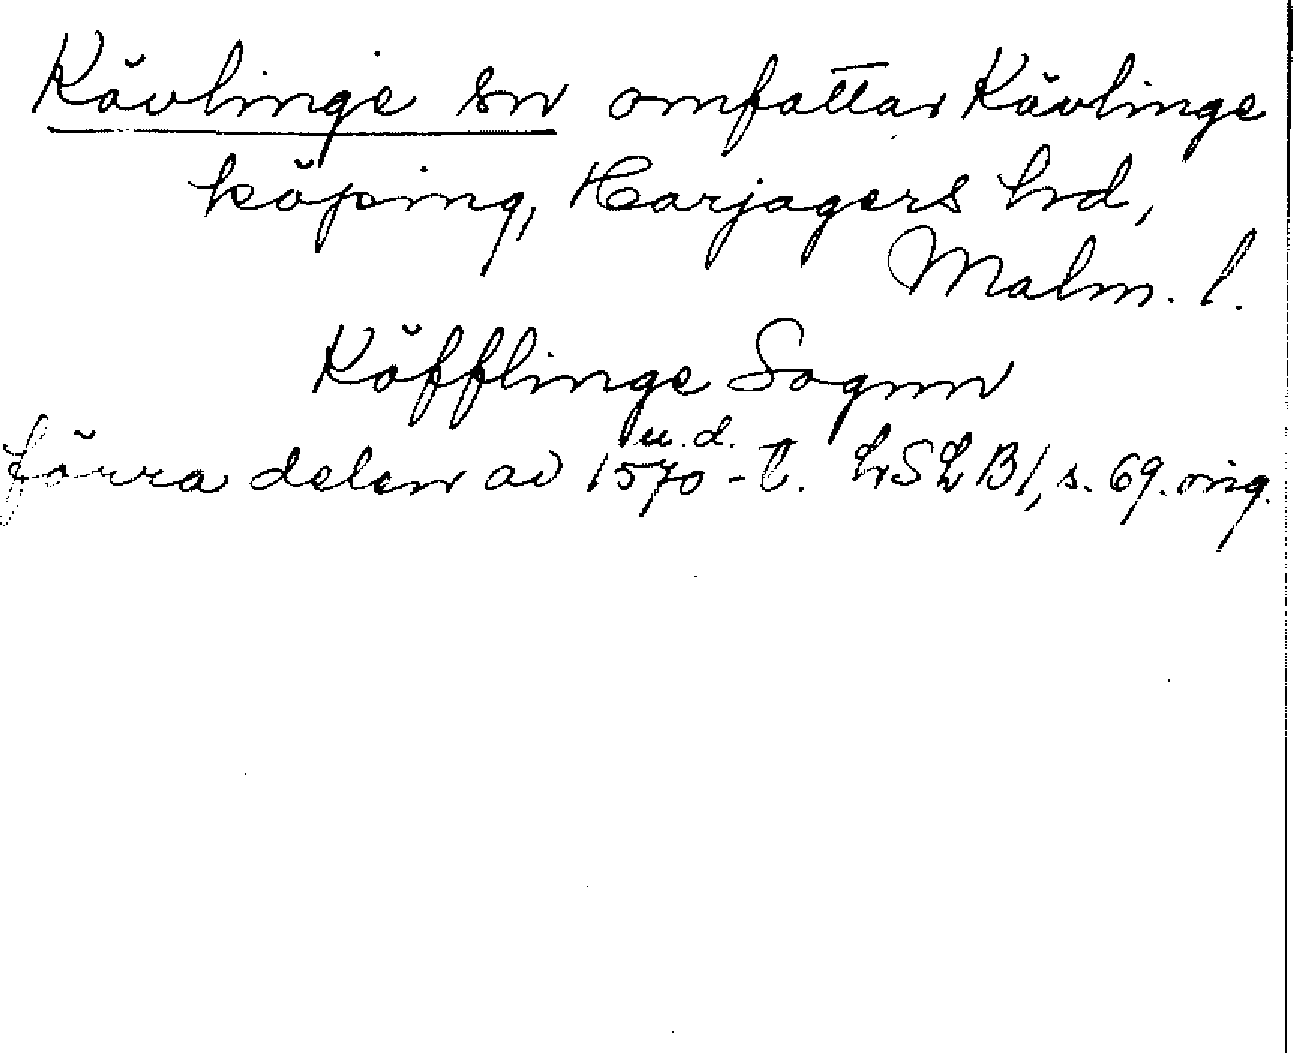 Kävlinge sn omfattar Kävlinge
köping, Harjagers hd,
Malm. l.
Köfflinge Sognn
u. d.
förra delen av 1570-t. LSLB1, s. 69. orig.